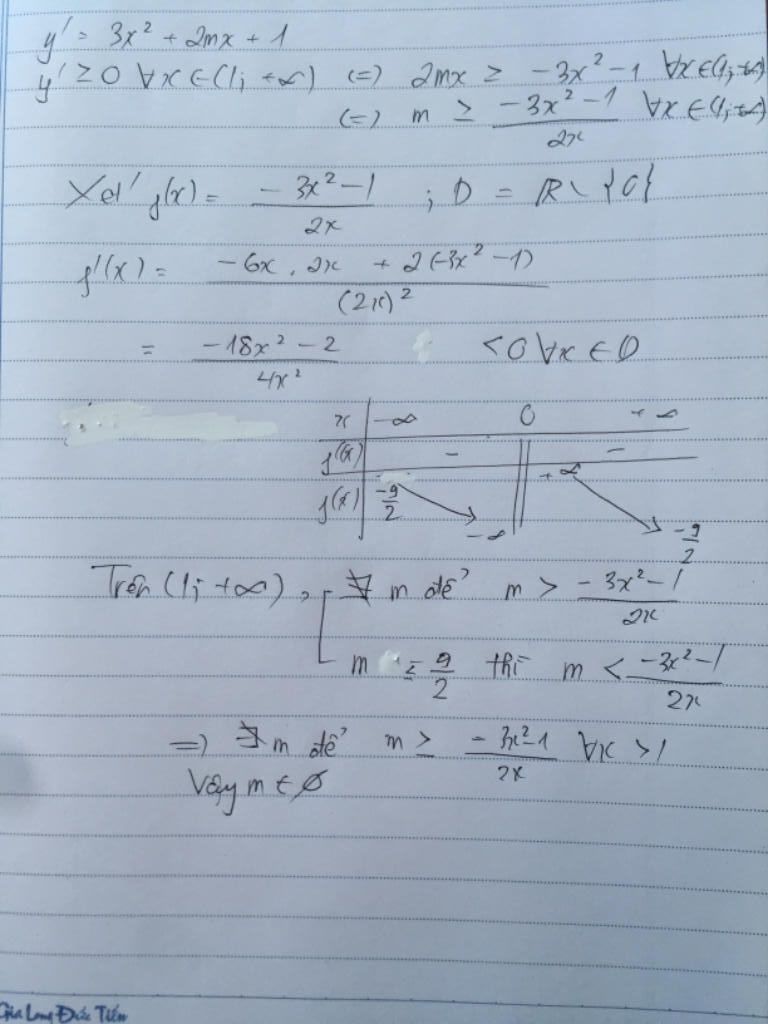 y' = 3x² + 2mx + 1
y' ≥ 0 ∀x ∈ (1; +∞) (=) 2mx ≥ -3x² - 1 ∀x ∈ (1; +∞)
(=) m ≥ (-3x² - 1)/(2x) ∀x ∈ (1; +∞)
Xét f(x) = (-3x² - 1)/(2x) ; D = ℝ \ {0}
f'(x) = (-6x . 2x + 2(-3x² - 1))/(2x)²
= (-18x² - 2)/(4x²) < 0 ∀x ∈ D
x | -∞ 0 + ∞
f'(x) | - || -
f(x) | -9/2 ↘ -∞ || +∞ ↘ -9/2
Trên (1; +∞), ∄ m để m > (-3x² - 1)/(2x)
m ≤ 9/2 thì m < (-3x² - 1)/(2x)
=> ∄ m để m ≥ (-3x² - 1)/(2x) ∀x > 1
Vậy m ∈ ∅
Gia Long Đức Tiến